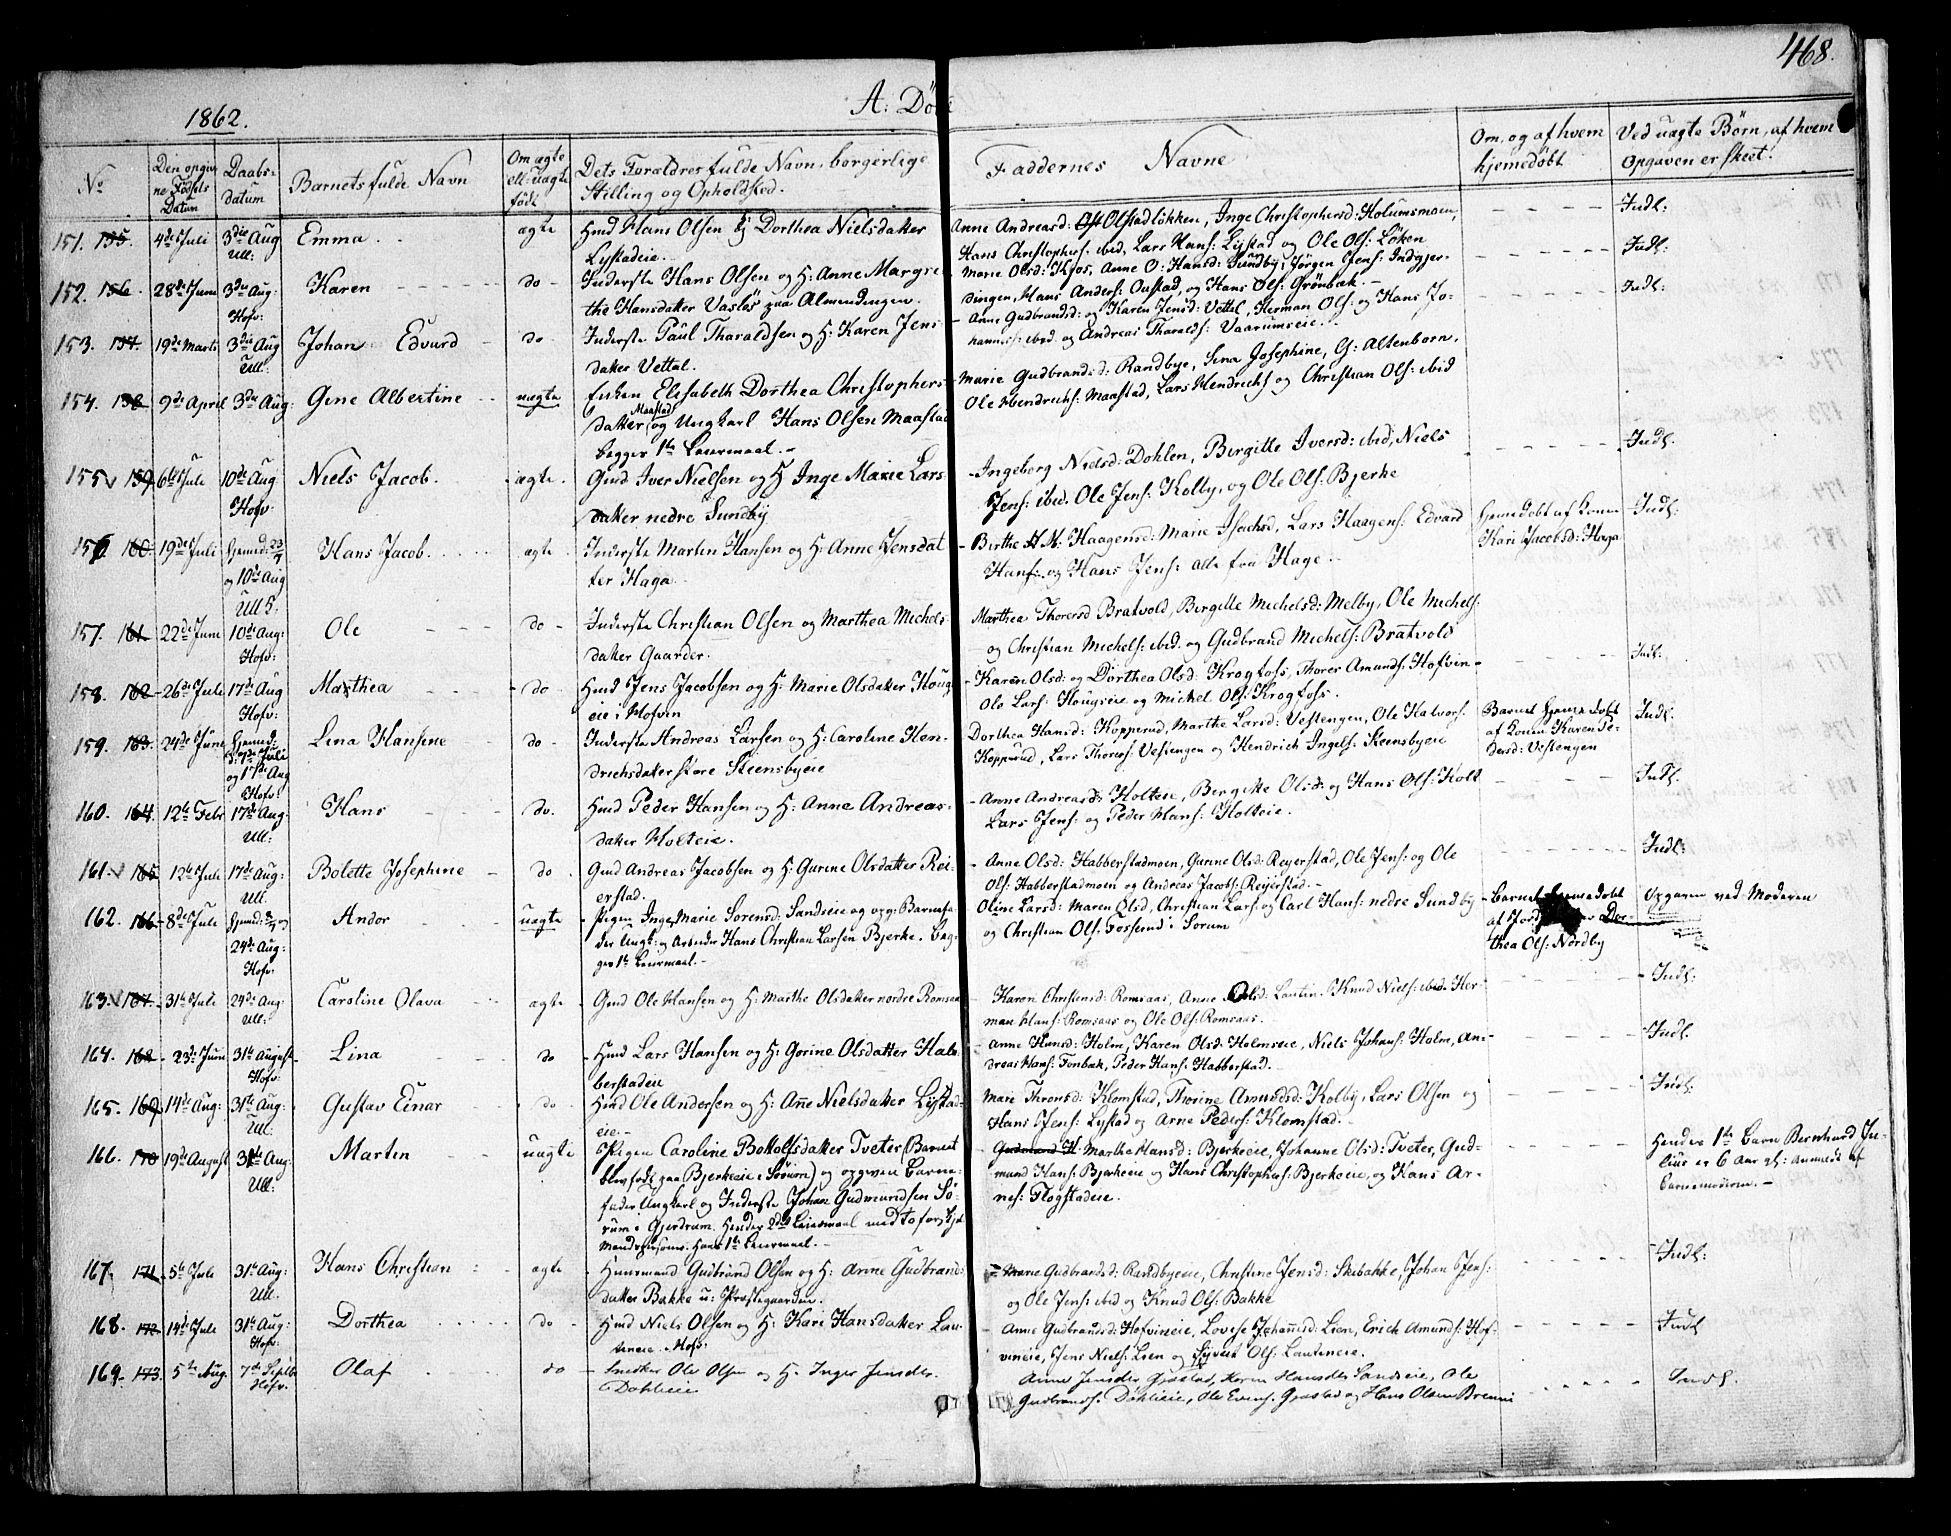 468.
1862.
A: Dö
No
Den opgiv
ne Fødsels
Datum
Daabs-
datum
Barnets fulde Navn
Om ægte
ell: uægte
født
Dets Forældres fulde Navn, borgerlige
Stilling og Opholdsted.
Faddernes Navne
Om, og af hvem
hjemedøbt
Ved uægte Børn, af hvem
Opgaven er skeet.
151. 155. 4de Juli 3die Aug Emma ægte Hmd Hans Olsen & Dorthea Nielsdatter
Ull: Lystadeie.
Anne Andreasd: Olstadløkken, Inge Christophersd: Holumsmoen, Indl:
Hans Christophers: ibid, Lars Hans: Lystad og Ole Ols: Løken
152. 156. 28de Juni 3die Aug: Karen do Inderste Hans Olsen og H: Anne Margre-
Hofv: the Hansdatter Vasløs paa Almendingen.
Marie Olsd: Kjos, Anne O: Hansd: Sundby, Jørgen Jens: Indgjer- Indl:
dingen, Hans Anders: Onstad, og Hans Ols: Grönbæk.
153. 157. 19de Marts 3die Aug Johan Edvard do Inderste Paul Tharaldsen og H: Karen Jens
Ull: datter Vettal.
Anne Gudbrandsd: og Karen Jensd: Vettel, Herman Ols: og Hans Jo- Indl:
hannes: ibid. og Andreas Tharalds: Vaarumseie.
154. 158. 9de April 3die Aug: Gine Albertine uægte Enken Elisabeth Dorthea Christophers
datter Maastad og Ungkarl Hans Olsen Maastad
begges 1te Leiermaal.
Marie Gudbrandsd: Randbye, Sina Josephine, G: Altenborn,
Ole Hendrichs: Maastad, Lars Hendrichs og Christian Ols: ibid
155 159. 6te Juli 10de Aug Niels Jacob. ægte. Gmd Iver Nielsen og H Inge Marie Lars-
Hofv: datter nedre Sundby
Ingeborg Nielsd: Dohlen, Birgitte Iversd: ibid, Niels Indl.
Jens: ibid. Ole Jens: Kolby, og Ole Ols: Bjerke
156 160. 19de Juli hjemed: 23/7 Hans Jacob. ægte. Inderste Martin Hansen og H: Anne Jensdat
og 10de Aug ter Haga
Ull S:
Birthe H M: Haagensd: Marie Isachsd, Lars Haagens: Edvard hjemedöbt af Konen Indl:
Hans: og Hans Jens: alle fra Hage Kari Jacobsd: Haga
157. 161. 22de Juni 10de Aug: Ole do Inderste Christian Olsen og Marthea Michels
Hofv: datter Gaarder.
Marthea Thoresd Bratvold, Birgitte Michelsd: Melby, Ole Michels:
og Christian Michels: ibid. og Gudbrand Michels: Bratvold
158. 162 26de Juli 17de Aug Mathea do Hmd Jens Jacobsen og H: Marie Olsdatter Houg
Hofv: eie i Hofvin
Karen Olsd: og Dorthea Olsd: Krogfoss, Thorer Amunds: Hofvin Indl:
Ole Lars: Hougseie og Michel Ols: Krogfoss.
159. 163. 24de Juni hjemed: Lina Hansine do Inderste Andreas Larsen og H: Caroline Hen-
og 17de Aug drichsdatter store Steensbyeie
Hofv:
Dorthea Hansd: Kopperud, Marthe Larsd: Vestengen, Ole Halvors: Barnet hjemedöbt Indl:
Kopperud, Lars Thores: Vestengen og Hendrich Ingels: Steensbyeie af Konen Karen Pe-
dersd: Vestengen
160. 164. 12te Febr 17de Aug: Hans do. Hmd Peder Hansen og H: Anne Andreas-
Ull: datter Holteie.
Anne Andreasd: Holteie, Bergitte Olsd: og Hans Ols: Holt Indl.
Lars Jens: og Peder Hans: Holteie.
161. 165. 12te Juli 17de Aug: Bolette Josephine do. Gmd Andreas Jacobsen og H: Gurine Olsdatter Rei-
Ull. erstad.
Anne Olsd: Habberstadmoen, Gurine Olsd: Reyerstad, Ole Jens: og Ole Indl:
Ols: Habberstadmoen og Andreas Jacobs: Reyerstad.
162. 166. 8de Juli hjemed: Andor uægte Pigen Inge Marie Sørensd: Sandseie og opg: Barnefa-
24de Aug: der Ungk: og Arbeider Hans Christian Larsen Bjerke. Beg-
Hofv: ges 1te Leiermaal.
Oline Larsd: Maren Olsd, Christian Lars: og Carl Hans: nedre Sundby Barnet hjemedöbt Opgaven ved Moderen
og Christian Ols: Fosserud i Sørum af Jord Dor-
thea Ols: Nordby
163. 167. 31te Juli 24de Aug: Caroline Olava ægte Gmd Ole Hansen og H: Marthe Olsdatter nordre Romsaas
Ull:
Karen Christensd: Romsaas, Anne Olsd: Lautin. Knud Niels: ibid. Her- Indl:
man Hans: Romsaas og Ole Ols: Romsaas.
164. 168. 23de Juni 31te August Lina do Hmd Lars Hansen og H: Gorine Olsdatter Hab-
Hofv: berstadeie
Anne Hansd: Holm, Karen Olsd: Holmseie, Niels Johans: Holm, An- Indl.
dreas Hans: Fonbæk, Peder Hans: Habberstad.
165. 169 14de Aug: 31te Aug: Gustav Einar do Hmd Ole Andersen og H: Anne Nielsdatter Lystad-
Ul. eie.
Marie Thronsd: Klomstad, Thorine Amundsd: Kolby, Lars Olsen og Indl:
Hans Jens: Lystad og Arne Peders: Klomstad.
166. 170 19de August 31te Aug: Martin uægte Pigen Caroline Botholfsdatter Tveter (Barnet
Ull: blev født paa Bjerkeeie i Sørum) og opgiven Barne-
fader Ungkarl og Inderste Johan Gudmundsen Sø-
rum i Gjerdrum. Hendes 2det Leiermaal med to forskjel
Mandspersoner. Hans 1te Leiermaal.
Marthe Hansd: Bjerkeeie, Johanne Olsd: Tveter, Gud- Hendes 1te Barn Bernhard Ju-
mund Hans: Bjerkeeie og Hans Christophers: Bjerkeeie, og Hans Ar- lius er 6 Aar gl: Anmeldt af
nes: Flogstadeie. Barnemoderen.
167. 171. 5te Juli 31te Aug: Hans Christian ægte Huusmand Gudbrand Olsen og H: Anne Gudbrands
Ull. datter Bakke u: Præstegaarden.
Marie Gudbrandsd: Randbyeie, Christine Jensd: Skibakke, Johan Jens: Indl:
og Ole Jens: ibid og Knud Ols: Bakke
168. 172. 14de Juli 31te Aug: Dorthea do Hmd Niels Olsen og H: Kari Hansdatter Lau-
Hofv: tineie. Hofv:
Anne Gudbrandsd: Hofvineie, Lovise Johannsd: Lien, Erich Amunds: Hof- Indl
vineie, Jens Niels: Lien og Syvert Ols: Lautineie.
169. 173. 5te Aug. 7de Septbr Olaf do Ole Olsen og H. Inger Jensdr.
Hofv. Dohlieie
Anne Jensdr Gjæstad, Karen Hansdr Sandseie, Ole Indl.
Gudbrands: Dohlieie, Ole Evens: Gjæstad og Hans Olsen Brenni